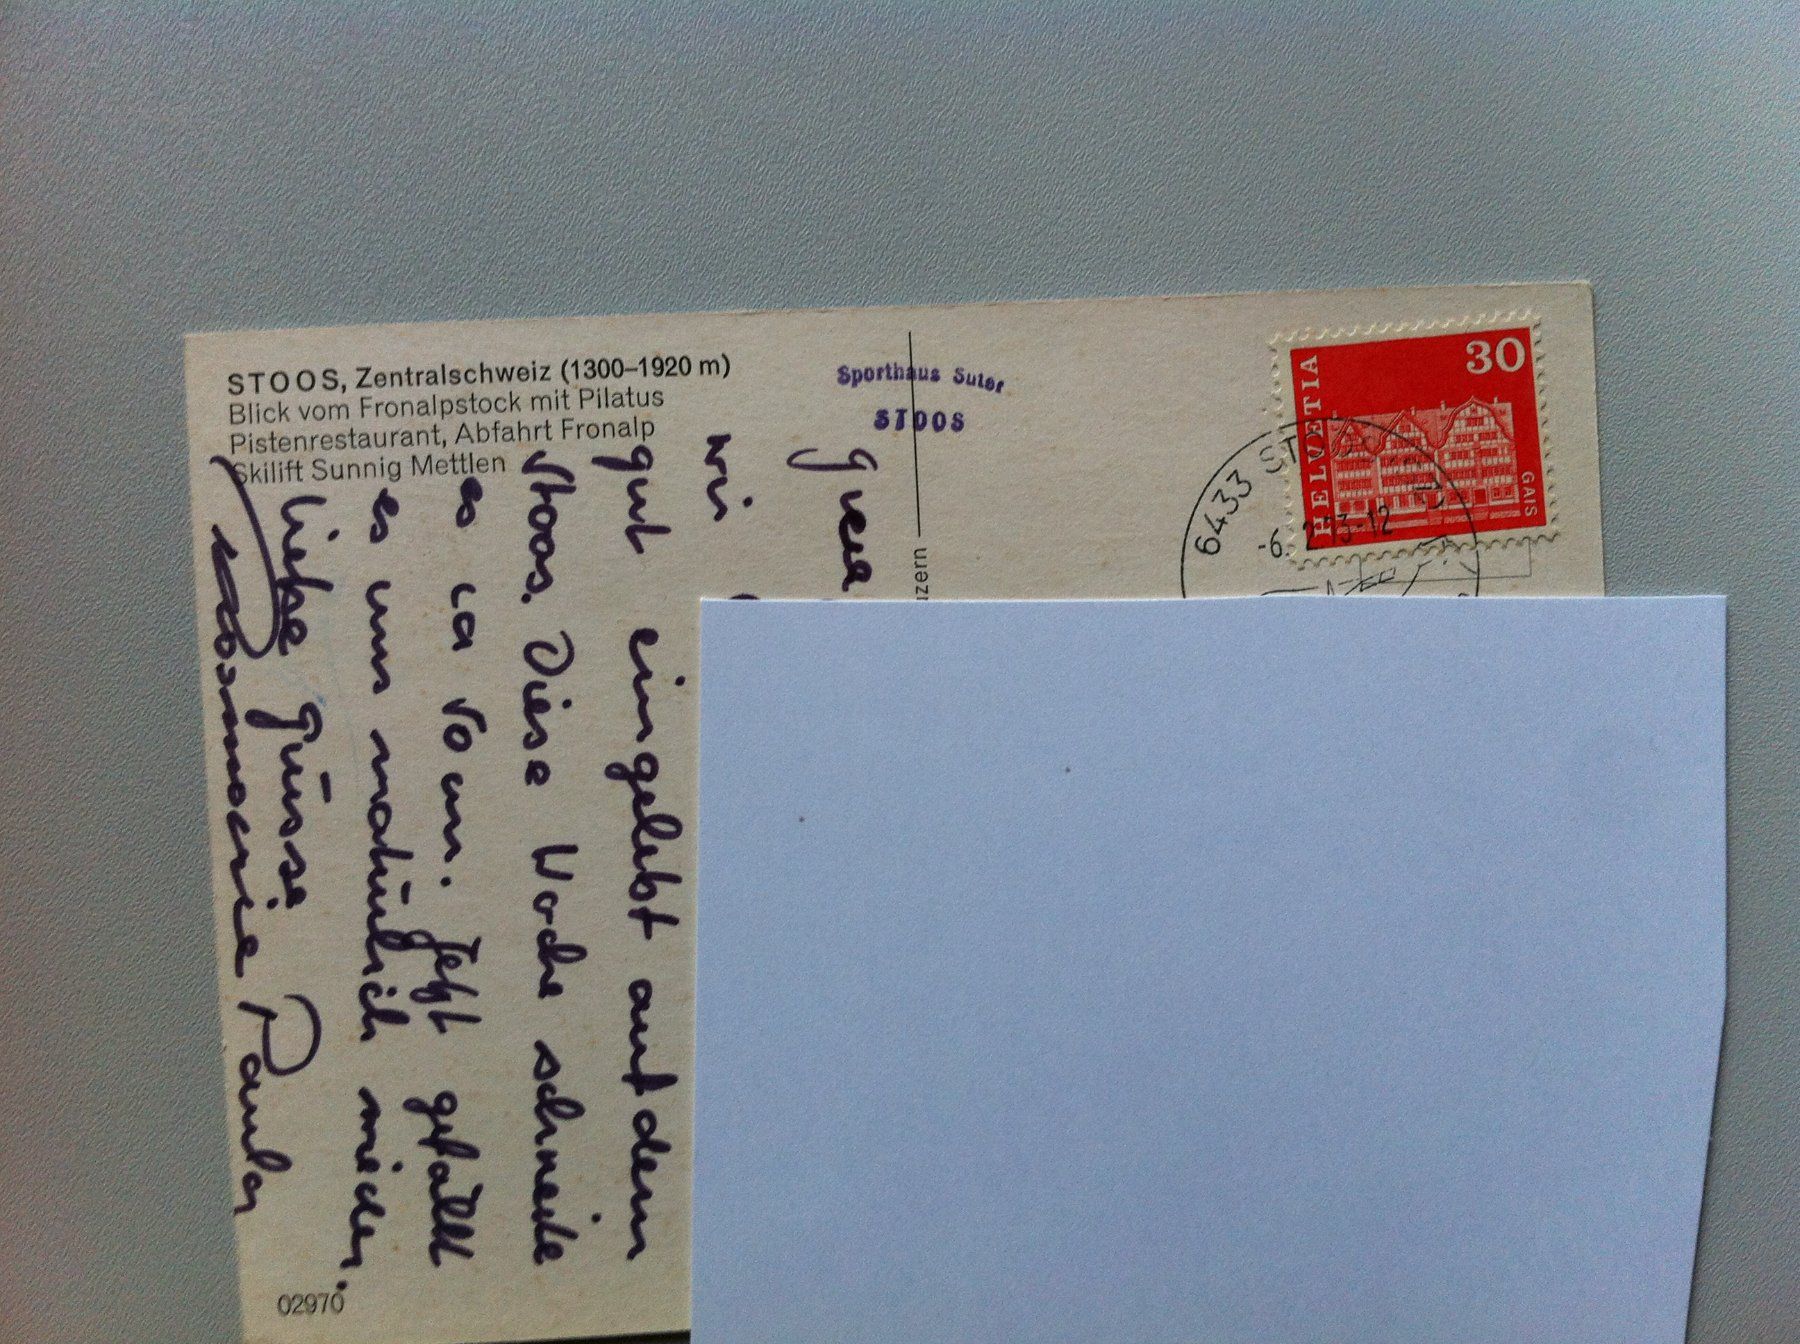 STOOS, Zentralschweiz (1300–1920 m)
Blick vom Fronalpstock mit Pilatus
Pistenrestaurant, Abfahrt Fronalp
Skilift Sunnig Mettlen
Sporthaus Suter
STOOS
HELVETIA
30
GAIS
6433 STOOS
-6. 2. 73-12
uzern
wir
gut eingelebt auf dem
Stoos. Diese Woche schneite
es ca 70 cm. Jetzt gefällt
es uns natürlich wieder.
Liebe Grüsse
Paula
02970